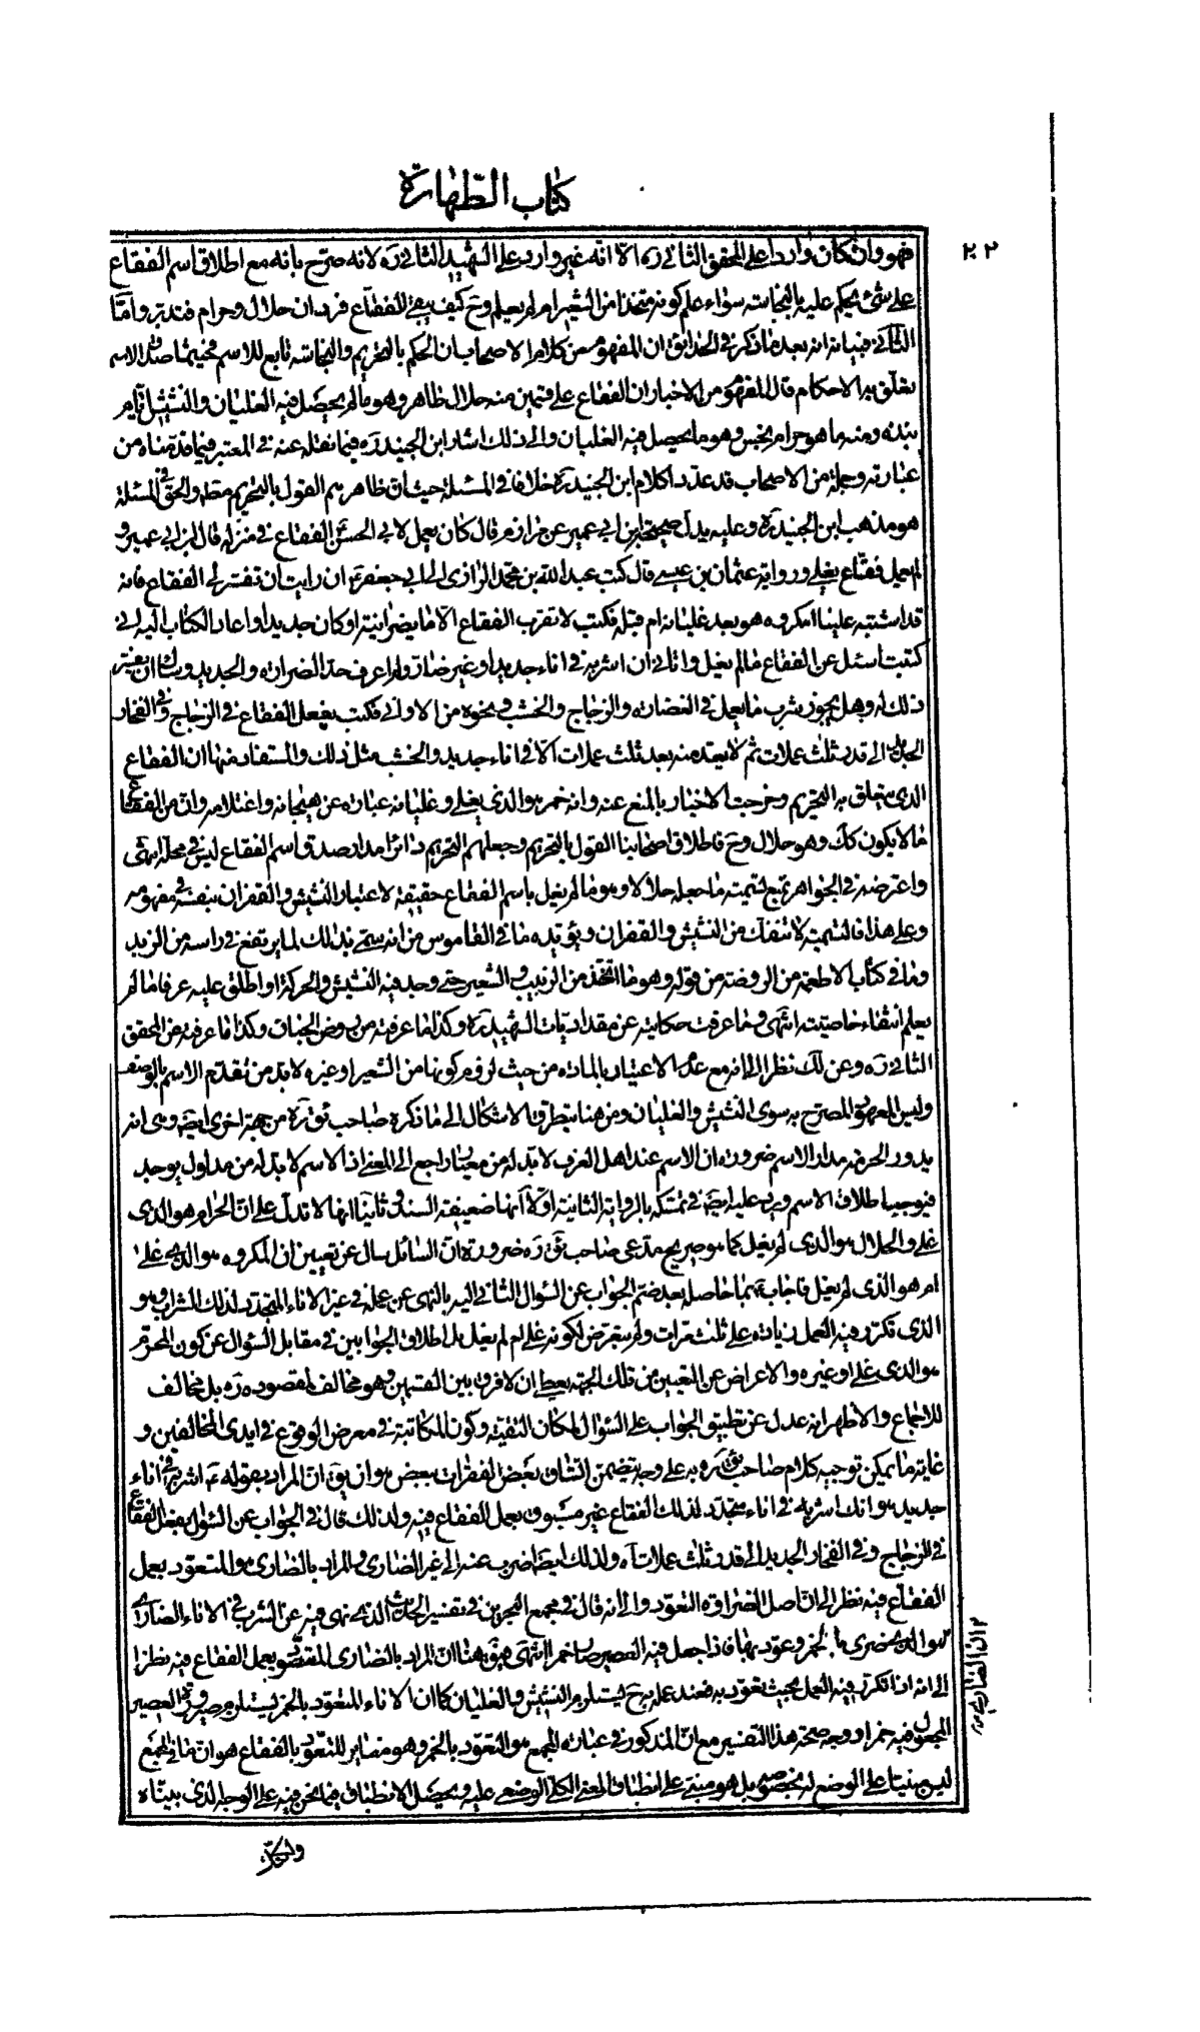 كتاب الطهارة
٢٠٢
فهو وان كان واردا على المحقق الثاني ره الا انه غير وارد على الشهيد الثاني ره لانه صرح بانه مع اطلاق اسم الفقاع
على شئ يحكم عليه بالنجاسة سواء علم كونه متخذا من الشعير ام لم يعلم وح كيف يبقى للفقاع فردان حلال وحرام فتدبر واما
الثاني فبيانه انه بعد ما ذكر في الحدائق ان المفهوم من كلام الاصحاب ان الحكم بالتحريم والنجاسة تابع للاسم فحيثما صدق الاسم
تعلق به الاحكام قال المفهوم من الاخبار ان الفقاع على قسمين منه حلال طاهر وهو ما لم يحصل فيه الغليان والنشيش بايام
نبذه ومنه ما هو حرام نجس وهو ما يحصل فيه الغليان والى ذلك اشار ابن الجنيد ره فيما نقله عنه في المعتبر فيما قدمناه من
عبارته وجملة من الاصحاب قد عدوا كلام ابن الجنيد ره خلافا في المسئلة حيث ان ظاهرهم القول بالتحريم مطلقا والحق في المسئلة
هو مذهب ابن الجنيد ره وعليه يدل صحيحة ابن ابي عمير عن مرازم قال كان يعمل لابي الحسن الفقاع في منزله قال ابن ابي عمير و
لم يعمل فقاع يغلي ورواية عثمان بن عيسى قال كتب عبد الله بن محمد الرازي الى ابي جعفر ع ان رايت ان تفسر لي الفقاع فانه
قد اشتبه علينا امكروه هو بعد غليانه ام قبله فكتب لا تقرب الفقاع الا ما يضر انيته او كان جديدا واعاد الكتاب اليه اني
كتبت اسئل عن الفقاع ما لم يغل واتاني ان اشربه في اناء جديد او غير ضار ولم اعرف حد الضراوة والجديد وسئل ان يفسر
ذلك له وهل يجوز شرب ما يعمل في الغضارة والزجاج والخشب ونحوه من الاواني فكتب يفعل الفقاع في الزجاج وفي الفخار
الجديد الى قدر ثلث عملات ثم لا يعد منه بعد ثلث عملات الا في اناء جديد والخشب مثل ذلك والمستفاد منها ان الفقاع
الذي يتعلق به التحريم وخرجت الاخبار بالمنع عنه وانه خمر هو الذي يغلي وغليانه عبارة عن هيجانه واغتلامه وان من الفقاع
ما لا يكون كك وهو حلال وح فاطلاق اصحابنا القول بالتحريم وجعلهم التحريم دائرا مدار صدق اسم الفقاع ليس في محله انتهى
واعترضه في الجواهر بمنع تسميته ما جعله حلالا وهو ما لم يغل باسم الفقاع حقيقة لاعتبار النشيش والقفزان بنفسه في مفهومه
وعلى هذا فالتسمية لا تنفك من النشيش والقفزان ويؤيده ما في القاموس من انه سمي بذلك لما يرتفع في راسه من الزبد
وما في كتاب الاطعمة من الروضة من قوله وهو ما اتخذ من الزبيب والشعير حتى وجد فيه النشيش والحركة او اطلق عليه عرفا ما لم
يعلم انتفاء خاصيته انتهى وما عرفت حكايته عن مقداديات الشهيد ره وكذا ما عرفته من روض الجنان وكذا ما عرفته عن المحقق
الثاني ره وعن لك نظرا الى انه مع عدم الاعتبار بالمادة من حيث لزوم كونها من الشعير او غيره لا بد من تقدم الاسم بالوصف
وليس المعهود المصرح به سوى النشيش والغليان ومن هنا يتطرق الاشكال الى ما ذكره صاحب ئق ره من جهة اخرى ايضا وهي انه
يدور الحرمة مدار الاسم ضرورة ان الاسم عند اهل العرف لا بد له من معيار راجع الى المعنى اذ الاسم لا بد له من مدلول يوجد
فيوجب اطلاق الاسم ويرد عليه ايضا في تمسكه بالرواية الثانية اولا انها ضعيفة السند وثانيا انها لا تدل على ان الحرام هو الذي
غلى والحلال هو الذي لم يغل كما هو صريح مدعى صاحب ئق ره ضرورة ان السائل سال عن تعيين ان المكروه هو الذي غلى
ام هو الذي لم يغل فاجاب ع بما حاصله بعد ضم الجواب عن السؤال الثاني اليه بالنهي عن عمله في غير الاناء المتجدد لذلك الشراب وهو
الذي تكرر فيه العمل زيادة على ثلث مرات ولم يتعرض لكونه غلى ام لم يغل بل اطلاق الجوابين في مقابل السؤال عن كون المحرم
هو الذي غلى او غيره والاعراض عن التعيين من تلك الجهة يعطى ان لا فرق بين القسمين وهو مخالف لمقصوده ره بل مخالف
للاجماع والاظهر انه عدل عن تطبيق الجواب على السؤال لمكان التقية وكون المكاتبة في معرض الوقوع في ايدي المخالفين و
غاية ما يمكن توجيه كلام صاحب ئق ره به على وجه يتضمن اتساق بعض الفقرات ببعض هو ان يق ان المراد بقوله ع اشربه في اناء
جديد هو انك اشربه في اناء متجدد لذلك الفقاع غير مسبوق بعمل الفقاع فيه ولذلك قال في الجواب عن السؤال يفعل الفقاع
في الزجاج وفي الفخار الجديد الى قدر ثلث عملات آه ولذلك ايضا ضرب عنه الى غير الضاري والمراد بالضاري هو المتعود بعمل
الفقاع فيه نظرا الى ان اصل الضراوة التعود والى انه قال في مجمع البحرين في تفسير الحديث الذي نهى فيه عن الشرب في الاناء الضاري
هو الذي ضرى بالخمر وعود بها فاذا جعل فيه العصير صار خمرا انتهى فيق هنا ان المراد بالضاري المتعود بعمل الفقاع فيه نظرا
الى انه اذا تكرر فيه العمل بحيث تعود به فعند عمله يستلزم النشيش والغليان كما ان الاناء المتعود بالخمر يستلزم صيرورة العصير
المجعول فيه خمرا ووجه صحة هذا التفسير مع ان المذكور في عبارة المجمع هو التعود بالخمر وهو مغاير للتعود بالفقاع هو ان ما في المجمع
ليس مبنيا على الوضع له بخصوصه بل هو مبني على انطباق المعنى الكلي الوضعي عليه ويحصل الانطباق فيما نحن فيه على الوجه الذي بيناه